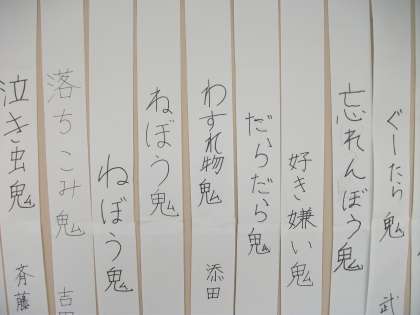 ぐーたら鬼 武
忘れんぼう鬼
好き嫌い鬼
だらだら鬼
わすれ物鬼 添田
ねぼう鬼
ねぼう鬼
落ちこみ鬼 吉田
泣き虫鬼 斉藤